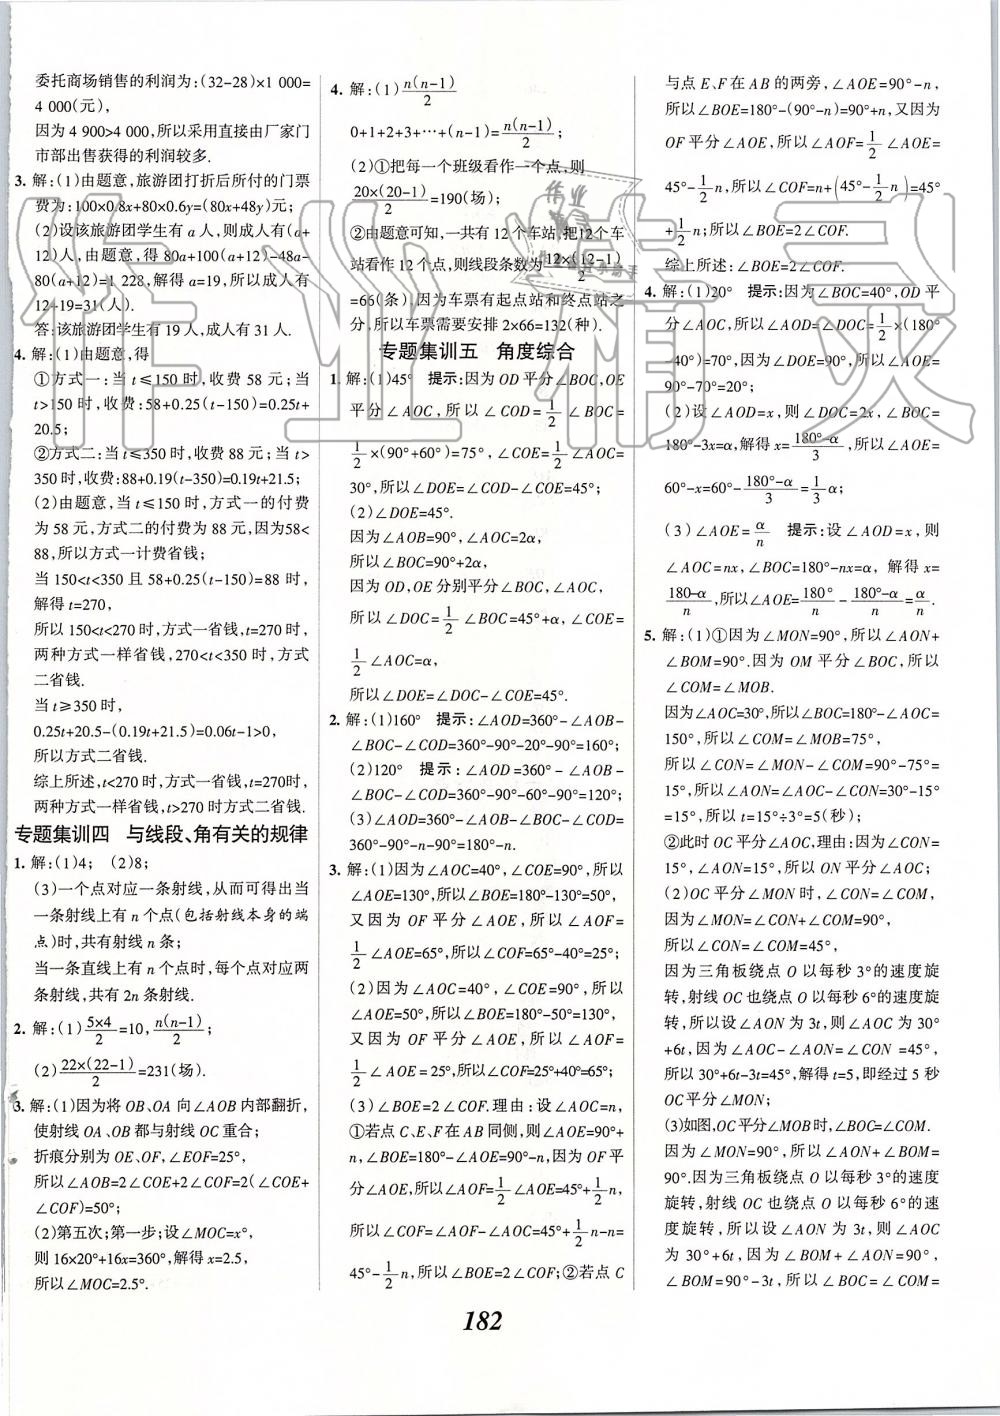 委托商场销售的利润为:(32-28)×1 000=
4 000(元),
因为 4 900>4 000,所以采用直接由厂家门
市部出售获得的利润较多.
3. 解:(1)由题意,旅游团打折后所付的门票
费为:100×0.8x+80×0.6y=(80x+48y)元;
(2)设该旅游团学生有 a 人,则成人有(a+
12)人,由题意,得 80a+100(a+12)-48a-
80(a+12)=1 228,解得 a=19,所以成人有
12+19=31(人).
答:该旅游团学生有 19 人,成人有 31 人.
4. 解:(1)由题意,得
①方式一:当 t≤150 时,收费 58 元;当
t>150 时,收费:58+0.25(t-150)=0.25t+
20.5;
②方式二:当 t≤350 时,收费 88 元;当 t>
350 时,收费:88+0.19(t-350)=0.19t+21.5;
(2)由题意,当 t≤150 时,方式一的付费
为 58 元,方式二的付费为 88 元,因为58<
88,所以方式一计费省钱;
当 150<t<350 且 58+0.25(t-150)=88 时,
解得 t=270,
所以 150<t<270 时,方式一省钱,t=270 时,
两种方式一样省钱,270<t<350 时,方式
二省钱.
当 t≥350 时,
0.25t+20.5-(0.19t+21.5)=0.06t-1>0,
所以方式二省钱.
综上所述,t<270 时,方式一省钱,t=270时,
两种方式一样省钱,t>270 时方式二省钱.
专题集训四 与线段、角有关的规律
1. 解:(1)4; (2)8;
(3)一个点对应一条射线,从而可得出当
一条射线上有 n 个点(包括射线本身的端
点)时,共有射线 n 条;
当一条直线上有 n 个点时,每个点对应两
条射线,共有 2n 条射线.
2. 解:(1)5×4/2=10,n(n-1)/2;
(2)22×(22-1)/2=231(场).
3. 解:(1)因为将 OB、OA 向∠AOB 内部翻折,
使射线 OA、OB 都与射线 OC 重合;
折痕分别为 OE、OF,∠EOF=25°,
所以∠AOB=2∠COE+2∠COF=2(∠COE+
∠COF)=50°;
(2)第五次;第一步;设∠MOC=x°,
则 16×20°+16x=360°,解得 x=2.5,
所以∠MOC=2.5°.
4. 解:(1)n(n-1)/2
0+1+2+3+…+(n-1)=n(n-1)/2;
(2)①把每一个班级看作一个点,则
20×(20-1)/2=190(场);
②由题意可知,一共有 12 个车站,把12个车
站看作 12 个点,则线段条数为12×(12-1)/2
=66(条),因为车票有起点站和终点站之
分,所以车票需要安排 2×66=132(种).
专题集训五 角度综合
1. 解:(1)45° 提示:因为 OD 平分∠BOC,OE
平分∠AOC,所以∠COD=1/2∠BOC=
1/2×(90°+60°)=75°,∠COE=1/2∠AOC=
30°,所以∠DOE=∠COD-∠COE=45°;
(2)∠DOE=45°.
因为∠AOB=90°,∠AOC=2α,
所以∠BOC=90°+2α,
因为 OD,OE 分别平分∠BOC,∠AOC,
所以∠DOC=1/2∠BOC=45°+α,∠COE=
1/2∠AOC=α,
所以∠DOE=∠DOC-∠COE=45°.
2. 解:(1)160° 提示:∠AOD=360°-∠AOB-
∠BOC-∠COD=360°-90°-20°-90°=160°;
(2)120° 提示:∠AOD=360°-∠AOB-
∠BOC-∠COD=360°-90°-60°-90°=120°;
(3)∠AOD=360°-∠AOB-∠BOC-∠COD=
360°-90°-n-90°=180°-n.
3. 解:(1)因为∠AOC=40°,∠COE=90°,所以
∠AOE=130°,所以∠BOE=180°-130°=50°,
又因为 OF 平分∠AOE,所以∠AOF=
1/2∠AOE=65°,所以∠COF=65°-40°=25°;
(2)因为∠AOC=40°,∠COE=90°,所以
∠AOE=50°,所以∠BOE=180°-50°=130°,
又因为 OF 平分∠AOE,所以∠AOF=
1/2∠AOE=25°,所以∠COF=25°+40°=65°;
(3)∠BOE=2∠COF.理由:设∠AOC=n,
①若点 C、E、F 在 AB 同侧,则∠AOE=90°+
n,∠BOE=180°-∠AOE=90°-n,因为 OF 平
分∠AOE,所以∠AOF=1/2∠AOE=45°+1/2n,
所以∠COF=∠AOF-∠AOC=45°+1/2n-n=
45°-1/2n,所以∠BOE=2∠COF;②若点 C
与点 E、F 在 AB 的两旁,∠AOE=90°-n,
所以∠BOE=180°-(90°-n)=90°+n,又因为
OF平分∠AOE,所以∠AOF=1/2∠AOE=
45°-1/2n,所以∠COF=n+(45°-1/2n)=45°
+1/2n;所以∠BOE=2∠COF.
综上所述:∠BOE=2∠COF.
4. 解:(1)20° 提示:因为∠BOC=40°,OD 平
分∠AOC,所以∠AOD=∠DOC=1/2×(180°
-40°)=70°,因为∠DOE=90°,所以∠AOE=
90°-70°=20°;
(2)设∠AOD=x,则∠DOC=2x,∠BOC=
180°-3x=α,解得 x=180°-α/3,所以∠AOE=
60°-x=60°-180°-α/3=1/3α;
(3)∠AOE=α/n 提示:设∠AOD=x,则
∠AOC=nx,∠BOC=180°-nx=α,解得 x=
180-α/n,所以∠AOE=180°/n-180°-α/n=α/n.
5. 解:(1)①因为∠MON=90°,所以∠AON+
∠BOM=90°.因为 OM 平分∠BOC,所以
∠COM=∠MOB.
因为∠AOC=30°,所以∠BOC=180°-∠AOC=
150°,所以∠COM=∠MOB=75°,
所以∠CON=∠MON-∠COM=90°-75°=
15°,所以∠AON=∠AOC-∠CON=30°-15°
=15°,所以 t=15°÷3°=5(秒);
②此时 OC 平分∠AON,理由:因为∠CON=
15°,∠AON=15°,所以 ON平分∠AOC;
(2)OC 平分∠MON 时,∠CON=∠COM,
因为∠MON=∠CON+∠COM=90°,
所以∠CON=∠COM=45°,
因为三角板绕点 O 以每秒 3°的速度旋
转,射线 OC 也绕点 O 以每秒 6°的速度旋
转,所以设∠AON 为 3t,则∠AOC 为 30°
+6t,因为∠AOC-∠AON=∠CON =45°,
所以 30°+6t-3t=45°,解得 t=5,即经过 5 秒
OC平分∠MON;
(3)如图,OC平分∠MOB时,∠BOC=∠COM.
因为∠MON=90°,所以∠AON+∠BOM=
90°,因为三角板绕点 O 以每秒 3°的速度
旋转,射线 OC 也绕点 O 以每秒 6°的速
度旋转,所以设∠AON 为 3t,则∠AOC
为 30°+6t,因为∠BOM+∠AON=90°,
∠BOM=90°-3t,所以∠BOC=∠COM=
182
作业精灵